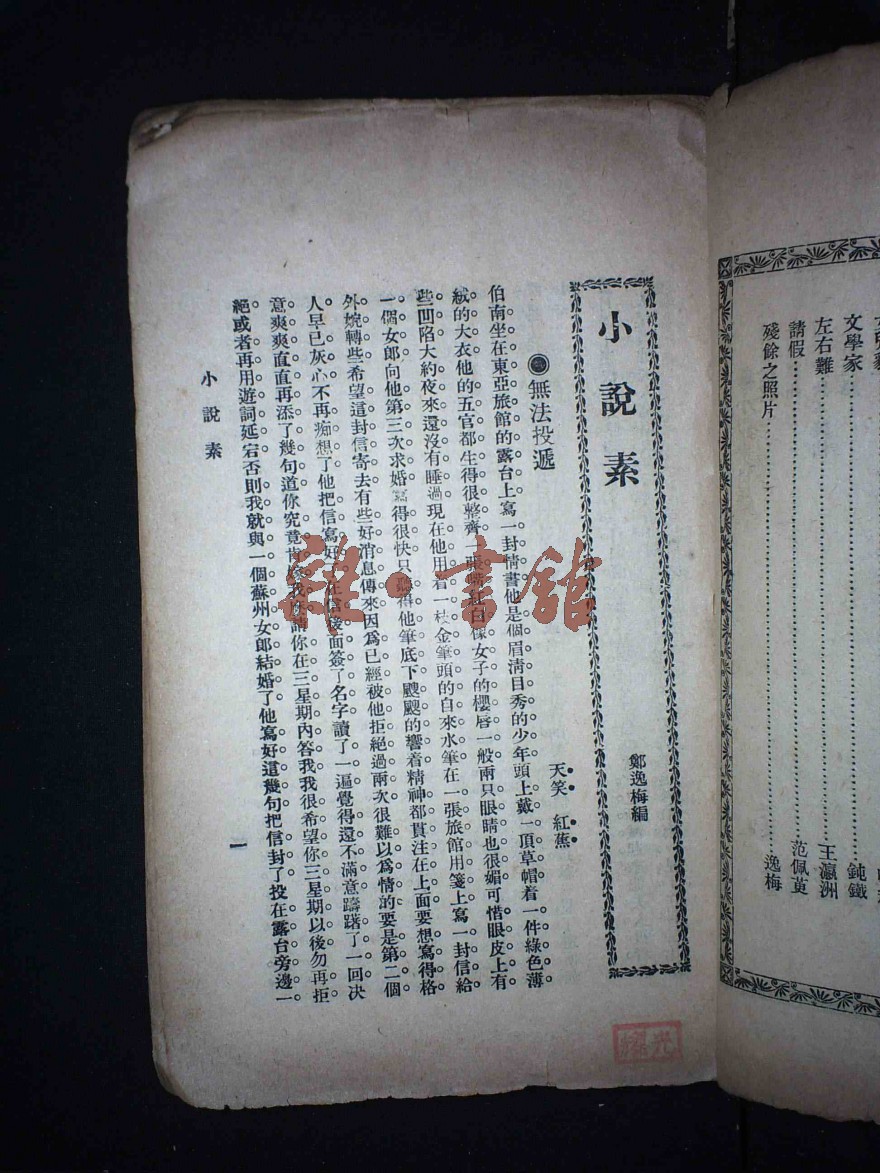 文學家……鈍鐵
左右難……王瀛洲
請假……范佩萸
殘餘之照片……逸梅
小說素
鄭逸梅編
無法投遞
天笑 紅蕉
伯南坐在東亞旅館的露台上寫一封情書他是個眉清目秀的少年頭上戴一頂草帽着一件綠色薄
絨的大衣他的五官都生得很整齊一張嘴紅白像女子的櫻唇一般兩只眼睛也很媚可惜眼皮上有
些凹陷大約夜來還沒有睡過現在他用着一枝金筆頭的自來水筆在一張旅館用箋上寫一封信給
一個女郎向他第三次求婚寫得很快只聽得他筆底下颼颼的響着精神都貫注在上面要想寫得格
外婉轉些希望這封信寄去有些好消息傳來因為已經被他拒絕過兩次很難以為情的要是第二個
人早已灰心不再痴想了他把信寫好在信後面簽了名字讀了一遍覺得還不滿意躊躇了一回決
意爽爽直直再添了幾句道你究竟肯嫁我請你在三星期內答我我很希望你三星期以後勿再拒
絕或者再用遊詞延宕否則我就與一個蘇州女郎結婚了他寫好這幾句把信封了投在露台旁邊一
小說素
一
雜·書館